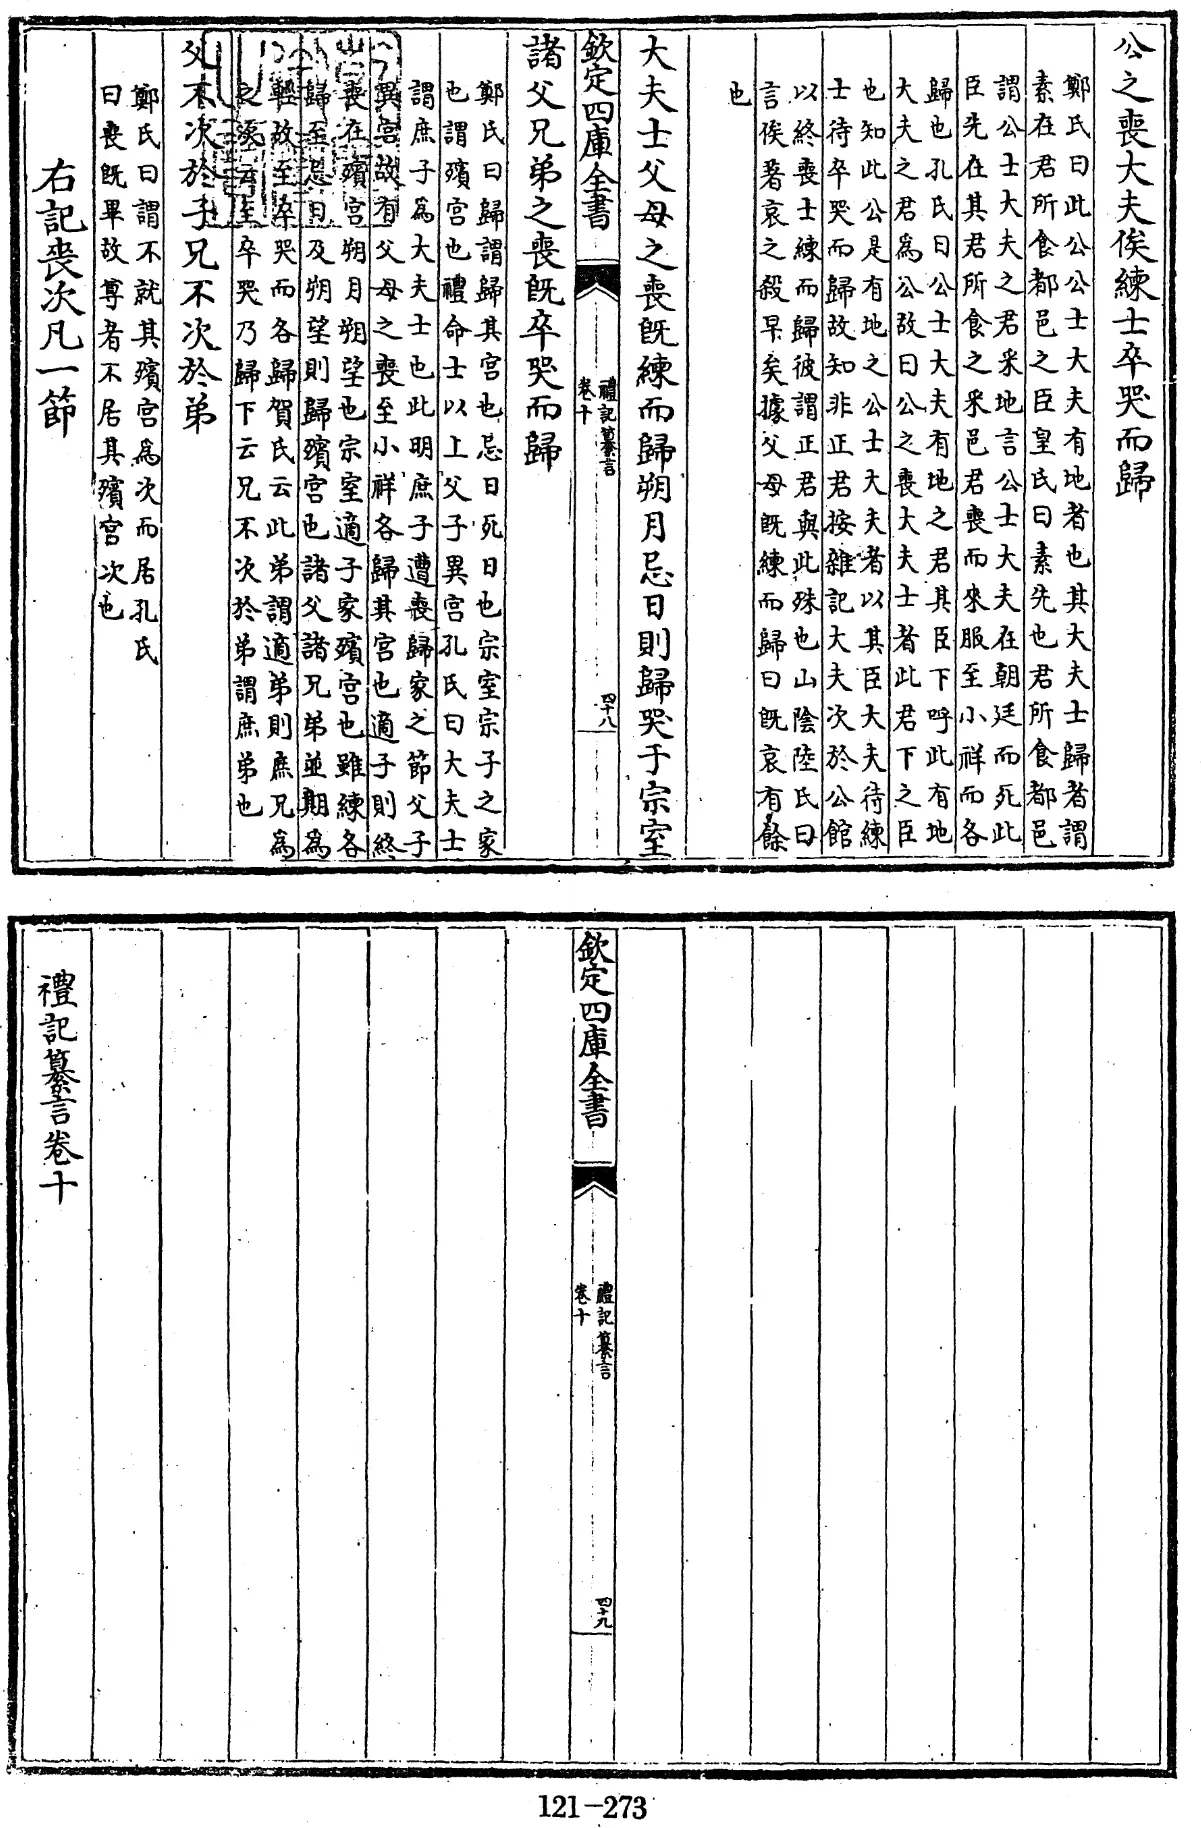 公之喪大夫俟練士卒哭而歸
鄭氏曰此公公士大夫有地者也其大夫士歸者謂
素在君所食都邑之臣皇氏曰素先也君所食都邑
謂公士大夫之君采地言公士大夫在朝廷而死此
臣先在其君所食之采邑君喪而來服至小祥而各
歸也孔氏曰公士大夫有地之君其臣下呼此有地
大夫之君為公故曰公之喪大夫士者此君下之臣
也知此公是有地之公士大夫者以其臣大夫待練
士待卒哭而歸故知非正君按雜記大夫次於公館
以終喪士練而歸彼謂正君與此殊也山陰陸氏曰
言俟著哀之殺早矣據父母既練而歸曰既哀有餘
也
大夫士父母之喪既練而歸朔月忌日則歸哭于宗室
欽定四庫全書
禮記纂言
卷十
四十八
諸父兄弟之喪既卒哭而歸
鄭氏曰歸謂歸其宮也忌日死日也宗室宗子之家
也謂殯宮也禮命士以上父子異宮孔氏曰大夫士
謂庶子為大夫士也此明庶子遭喪歸家之節父子
異宮故有父母之喪至小祥各歸其宮也適子則終
喪在殯宮朔月朔望也宗室適子家殯宮也雖練各
歸至忌日及朔望則歸殯宮也諸父諸兄弟並期為
輕故至卒哭而各歸賀氏云此弟謂適弟則庶兄為
之次云至卒哭乃歸下云兄不次於弟謂庶弟也
父不次於子兄不次於弟
鄭氏曰謂不就其殯宮為次而居孔氏
曰喪既畢故尊者不居其殯宮次也
右記喪次凡一節
欽定四庫全書
禮記纂言
卷十
四十九
禮記纂言卷十
121-273